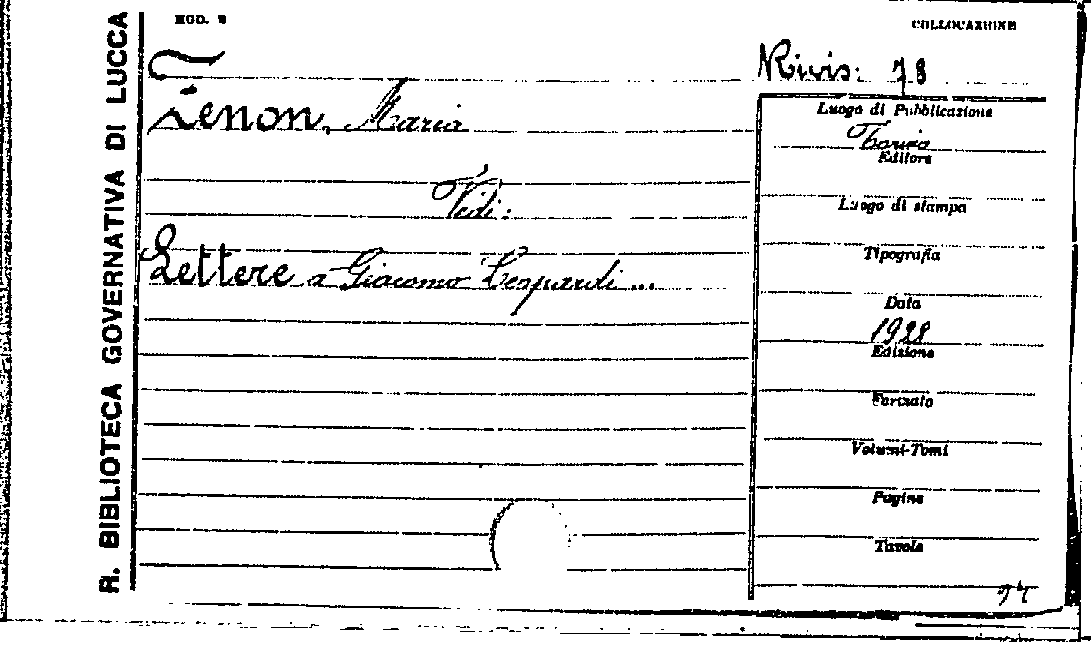 R. BIBLIOTECA GOVERNATIVA DI LUCCA
MOD. 8
COLLOCAZIONE
Rivis: 78
Zenon, Maria
Vedi:
Lettere a Giacomo Leopardi ...
Luogo di Pubblicazione
Torino
Editore
Luogo di stampa
Tipografia
Data
1928
Edizione
Formato
Volumi-Tomi
Pagine
Tavole